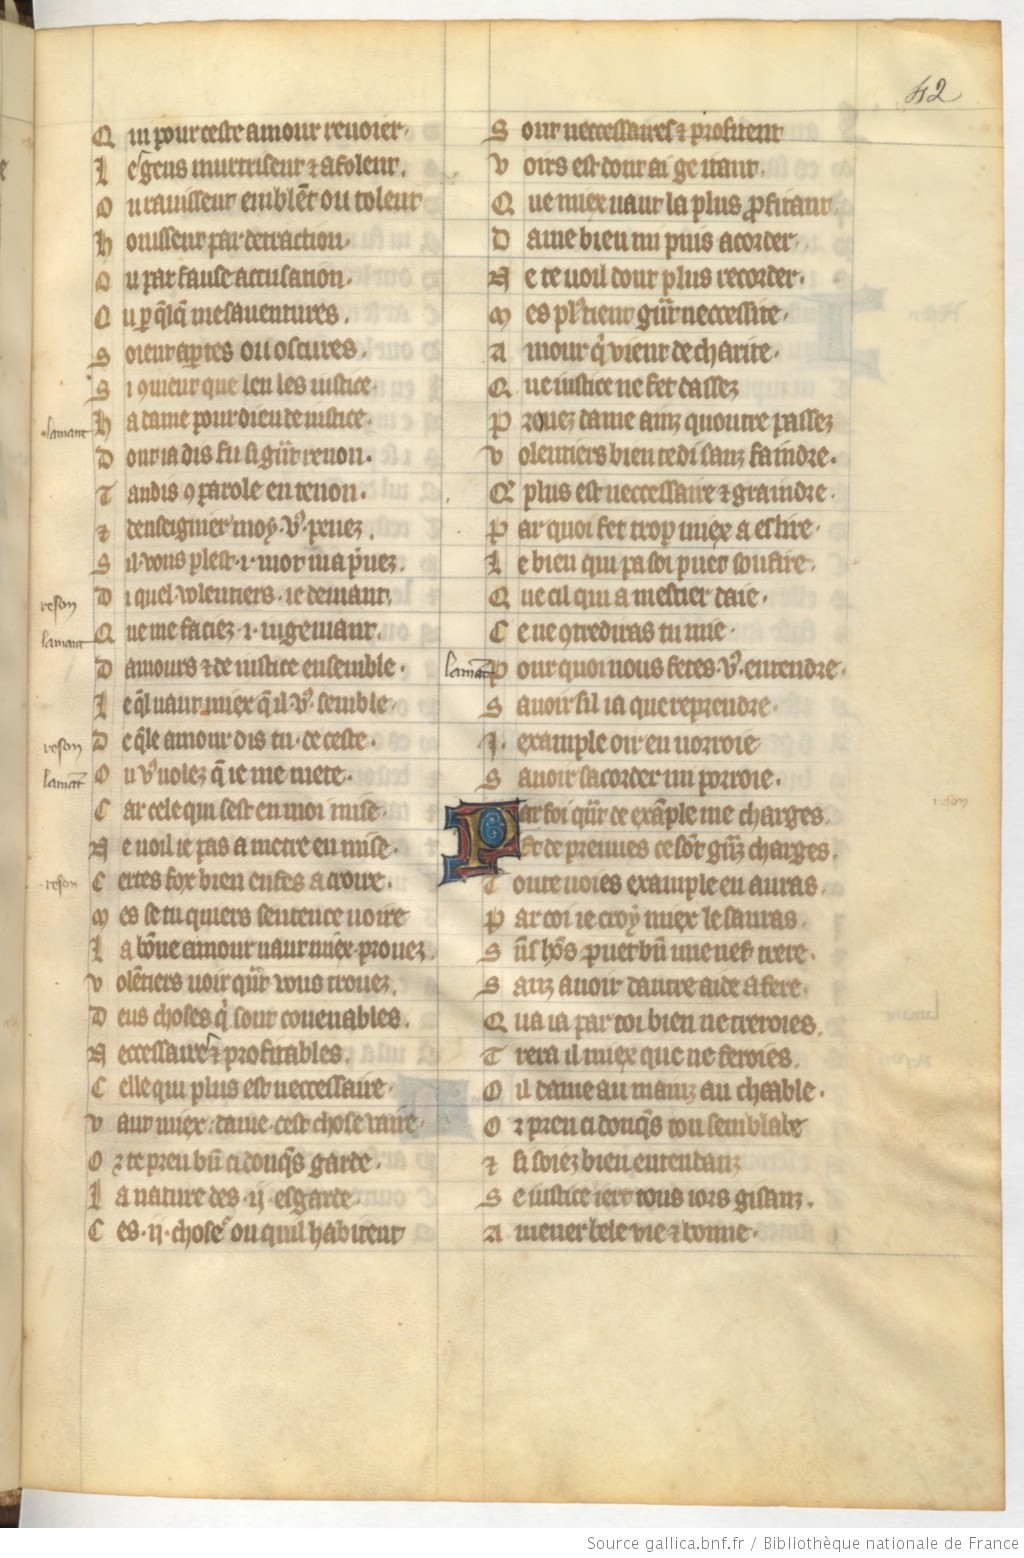 42
Qui pour ceste amour renoier.
Les gens murtrisent ⁊ afolent.
Ou ravissent emblēt ou tolent
Ou nuissent par detraction.
Ou par fause accusation.
Ou p̲ q̄lq̄ mesaventures.
Soient apertes ou oscures.
Si ꝯvient que len les iustice.
lamant
Ha dame pour dieu de iustice.
Dont ia dis fu si gñt renon.
Tandis ꝯ parole en tenon.
⁊ denseignier moy .vꝰ. penez.
Sil vous plest .i. mot map̄nez.
reson
Di quel. volentiers. ie demant.
lamant
Que me faciez .i. iugemant.
Damours ⁊ de iustice ensemble.
Leq̄l vaut miex q̄ il .vꝰ. semble.
reson
De q̄le amour dis tu. de ceste.
lamāt
Ou vꝰ volez q̄ ie me mete.
Car cele qui sest en moi mise
Ne voil ie pas a metre en mise.
reson
Certes fox bien en fes a croire.
Mes se tu quiers sentence voire
La bōne amour vaut miex. prouez.
Volētiers voir q̄r vous trouez.
Deus choses q̄ sont covenables.
Necessaires ⁊ profitables.
Celle qui plus est neccessaire.
Vaut miex. dame. cest chose vaire.
Or te pren bn̄ ci donq̄s garde.
La nature des .ij. esgarde.
Ces .ij. choses ou quil habitent
Sont neccessaires ⁊ profitent
Voirs est dont ai ge itant.
Que miex vaut la plus ꝓfitant.
Dame bien mi puis acorder.
Ne te voil dont plus recorder.
Mes pl̄ tient gñt neccessite.
Amour q̄ vient de charite.
Que iustice ne fet dassez
Prouez dame ainz quoutre passez
Volentiers bien te di sanz faindre.
Q̄ plus est neccessaire ⁊ graindre.
Par quoi fet trop miex a eslire.
Le bien qui pa soi puet soufire.
Que cil qui a mestier daie.
Ce ne ꝯtrediras tu mie.
lamāt
Pour quoi nous fetes .vꝰ. entendre.
Savoir sil i a que reprendre.
.I. example oir en vorroie
Savoir sacorder mi porroie.
Par foi q̄nt de exāple me charges.
Et de preuves ce sōt gñz charges.
reson
Toute voies example en auras.
Par coi ie croy miex le sauras.
S uns hōs puet bn̄ une nef trere.
Sanz avoir dautre aide a fere.
Qua ia par toi bien ne treroies.
Trera il miex que ne feroies.
Oil dame au mainz au chaable.
Or pren ci donq̄s ton semblable
⁊ si soiez bien entendanz
Se iustice iert tous iors gisanz.
A mener bele vie ⁊ bonne.
Source gallica.bnf.fr / Bibliothèque nationale de France